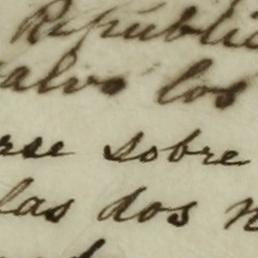 Repúblic
salvo los
rse sobre
las dos n